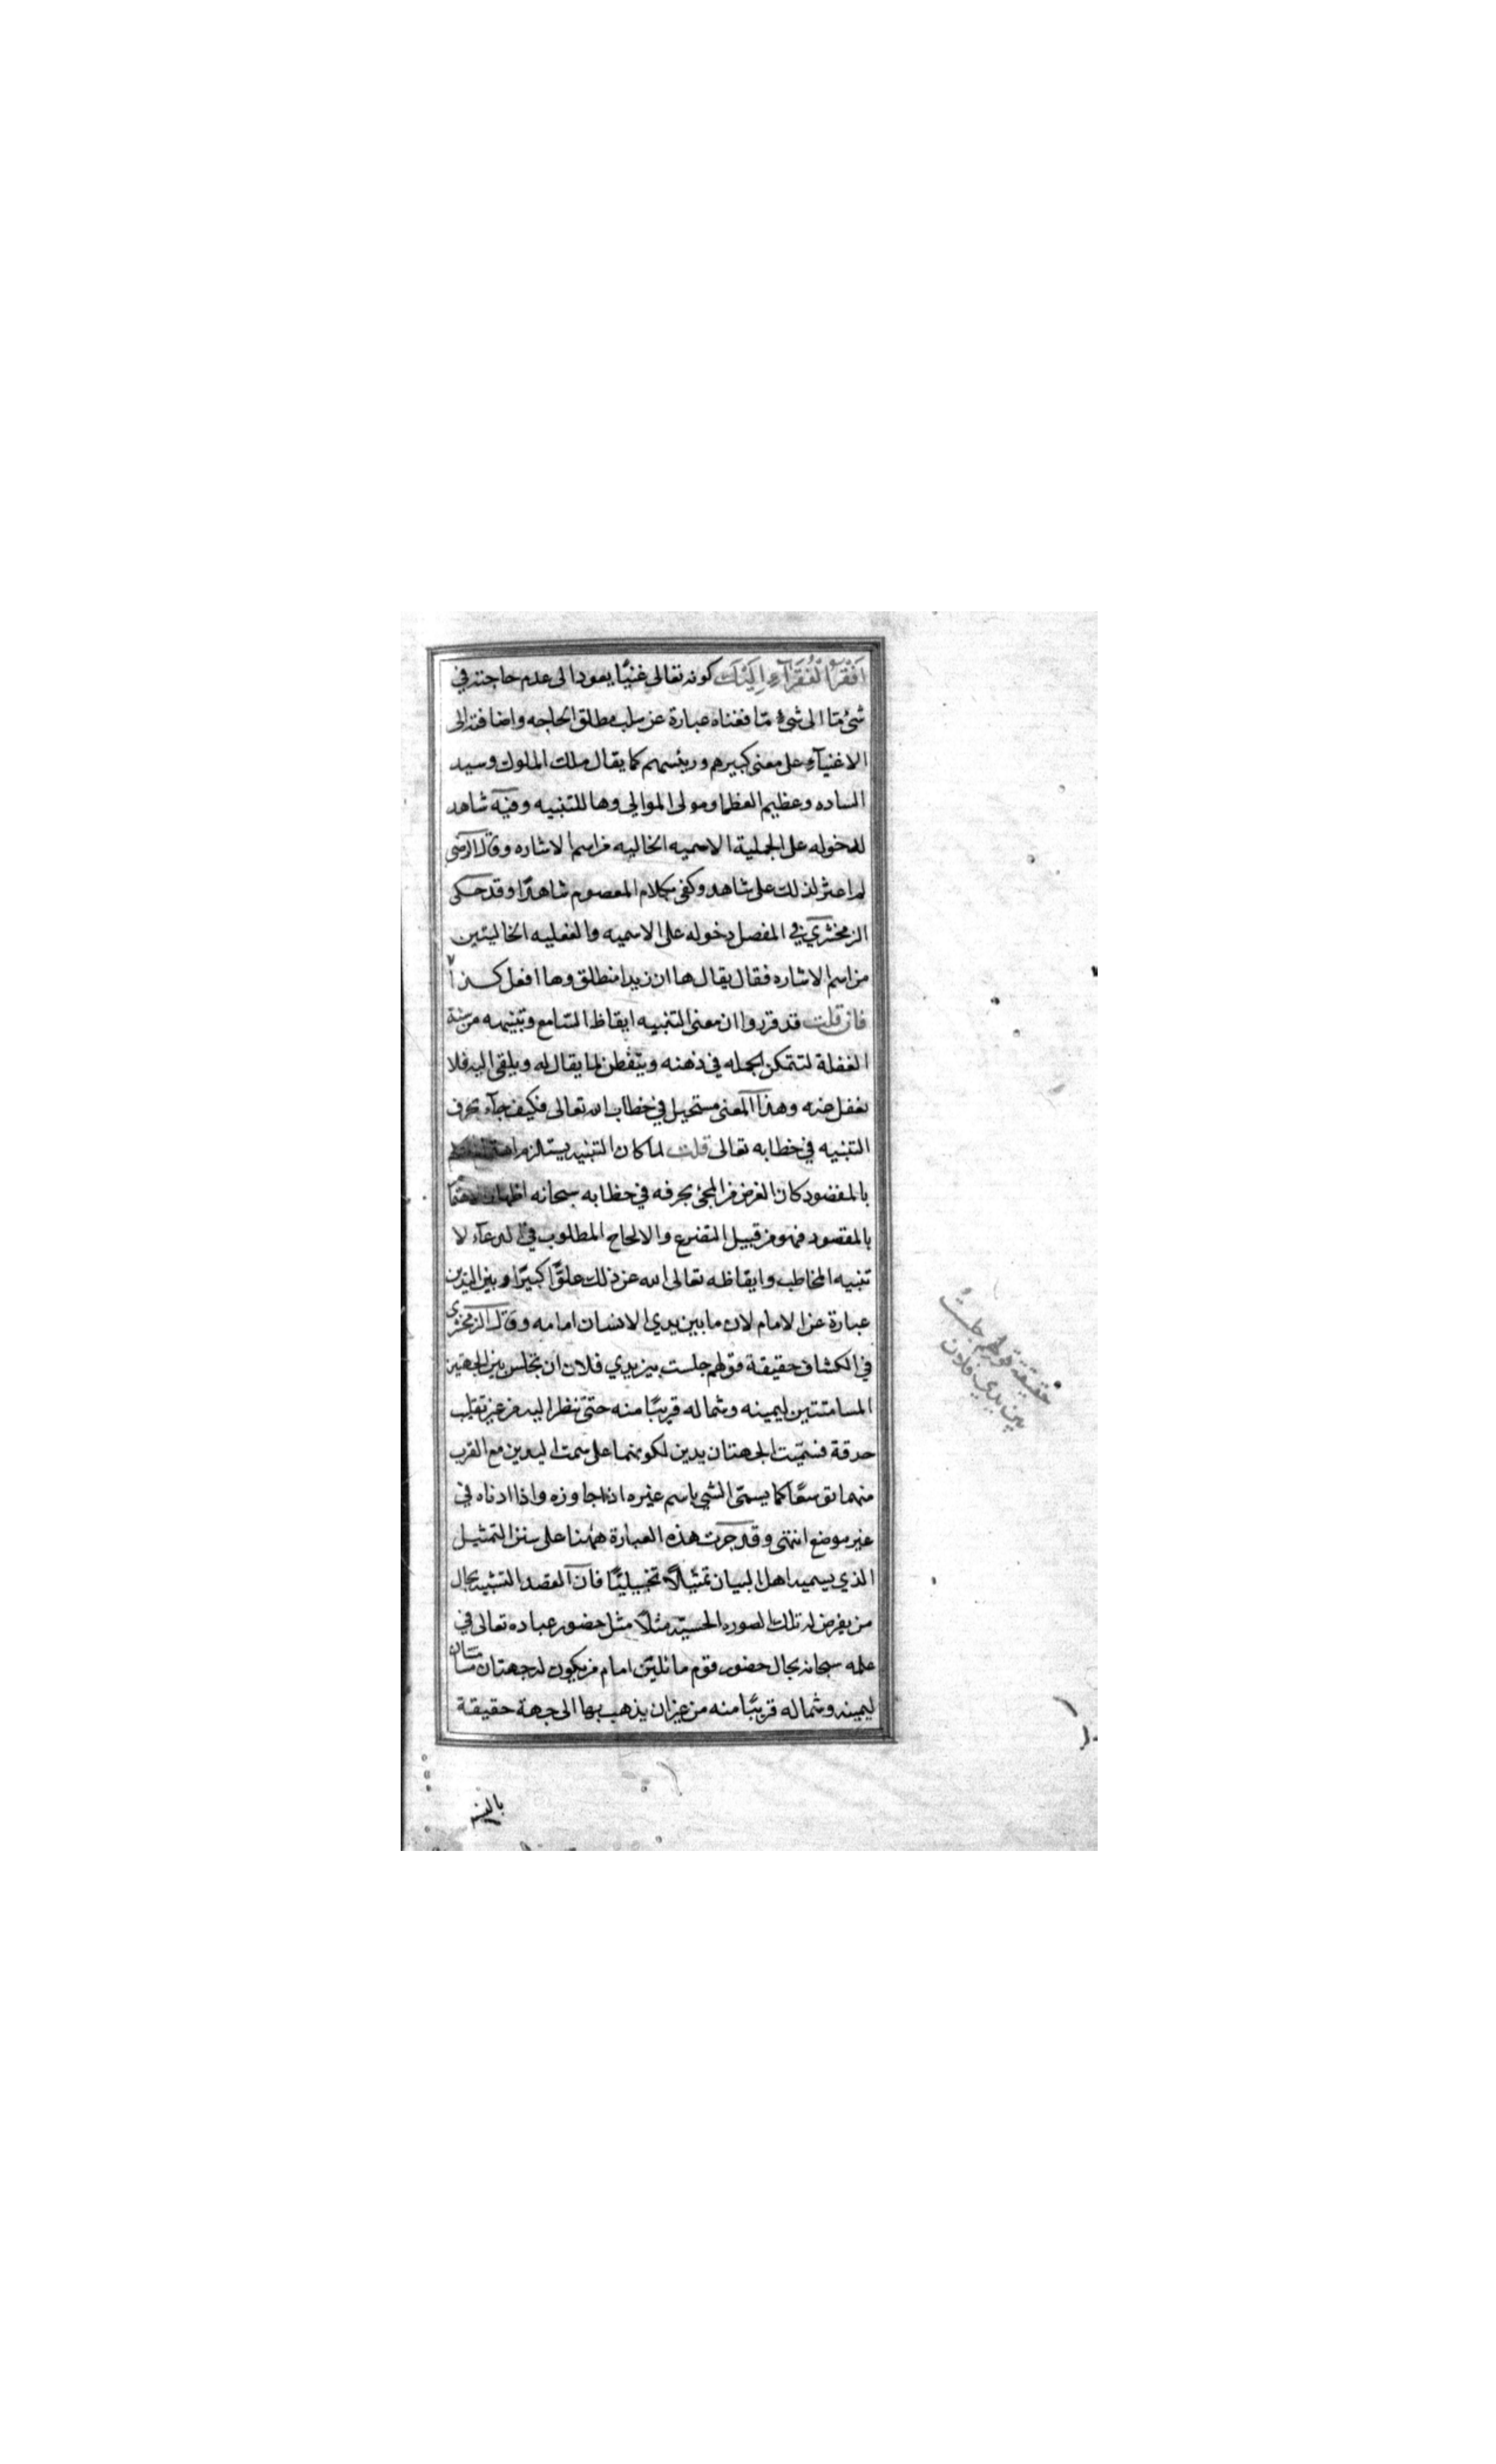 اَفْقَرُ الْفُقَرَآءِ اِلَيْكَ كونه تعالى غنيًّا يعود الى عدم حاجته في
شئ مّا الى شئ مّا فغناه عبارة عن سلب مطلق الحاجه واضافته الى
الاغنيآء على معنى كبيرهم ورئيسهم كما يقال ملك الملوك وسيد
الساده وعظيم العظما ومولى الموالي وها للتنبيه وفيه شاهد
لدخوله على الجملية الاسميه الخاليه من اسم الاشاره وقال الرضى
لم اعثر لذلك على شاهد وكفى بكلام المعصوم شاهدًا وقد حكى
الزمخشري في المفصل دخوله على الاسميه والفعليه الخاليتين
من اسم الاشاره فقال يقال ها ان زيدا منطلق وها افعل كذا
فان قلت قد قرروا ان معنى التنبيه ايقاظ السّامع وتنبيهه من سنة
الغفلة لتتمكن الجمله في ذهنه ويتفطن لما يقال له ويلقى اليه فلا
يغفل عنه وهذا المعنى مستحيل في خطاب الله تعالى فكيف جآء بحرف
التنبيه في خطابه تعالى قلت لما كان التنبيه يستلزم
بالمقصود كان الغرض من المجئ بحرفه في خطابه سبحانه اظهار
بالمقصود فهو من قبيل التضرع والالحاح المطلوب في الدعآء لا
تنبيه المخاطب وايقاظه تعالى الله عن ذلك علوًّا كبيرًا وبين اليدين
عبارة عن الامام لان ما بين يدي الانسان امامه وقال الزمخشرى
في الكشاف حقيقة قولهم جلست بين يدي فلان ان تجلس بين الجهتين
المسامتتين ليمينه وشماله قريبًا منه حتى تنظر اليه من غير تقليب
حدقة فسمّيت الجهتان يدين لكونهما على سمت اليدين مع القرب
منهما توسعًا كما يسمّى الشئ باسم غيره اذا جاوزه واذا ادناه في
غير موضع انتهى وقد جرت هذه العبارة ههنا على سنن التمثيل
الذي يسميه اهل البيان تمثيلًا تخييليًّا فان القصد التشبيه بحال
من يفرض له تلك الصوره الحسيّه مثلًا مثل حضور عباده تعالى في
علمه سبحانه بحال حضور قوم ماثلين امام من يكون له جهتان مسامتتان
ليمينه وشماله قريبًا منه من غير ان يذهب بها الى جهة حقيقة
حقيقة قولهم جلستُ
بين يدي فلان